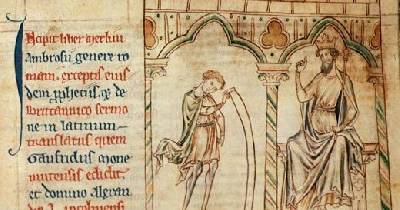 Incipit liber merlini
ambrosii genere ro
mani. exceptis eius
dem de
Brittannico sermo
ne in latinum
translatus quem
Gaufridus mone
mutensis edidit
et domino Alexan